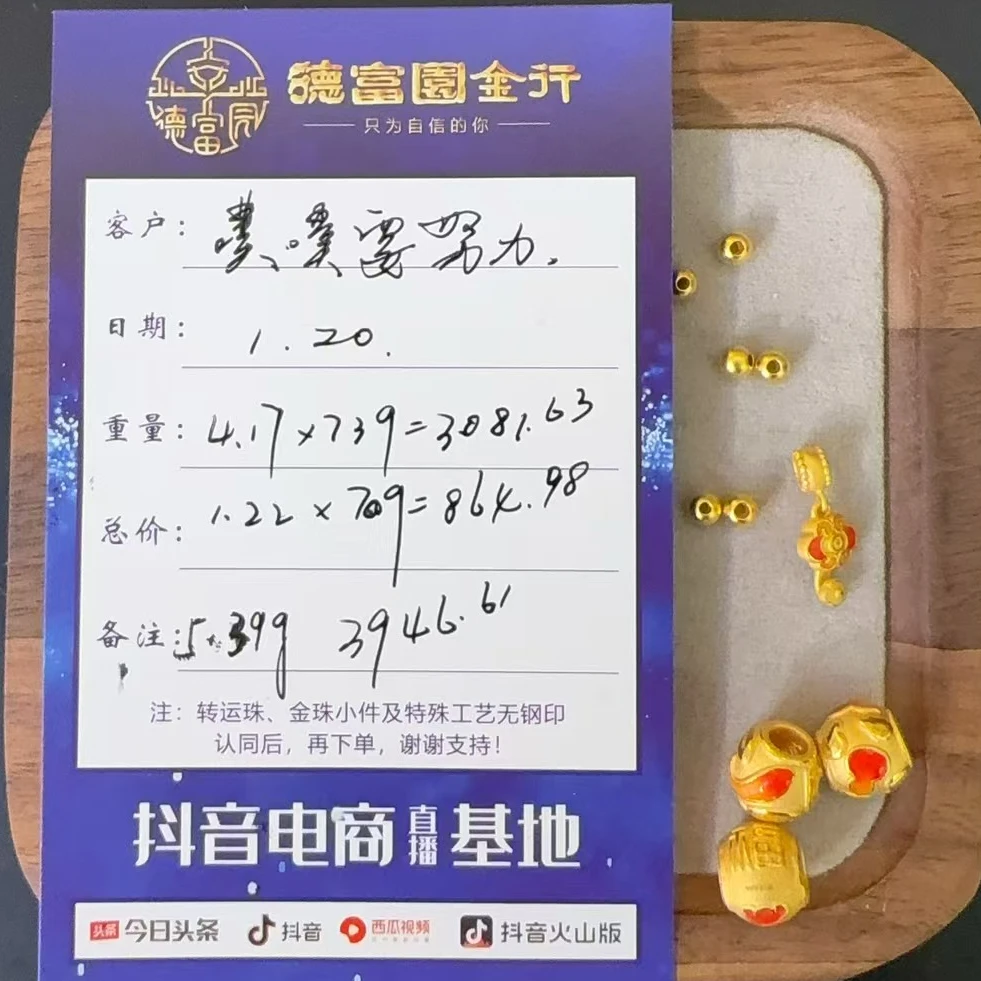 德富園金行
只为自信的你
德富園
客户: 噗噗要努力.
日期: 1.20.
重量: 4.17×739=3081.63
总价: 1.22×709=864.98
备注: 5.39g 3946.61
注: 转运珠、金珠小件及特殊工艺无钢印
认同后，再下单，谢谢支持！
抖音电商直播基地
头条 今日头条 抖音 西瓜视频 抖音火山版